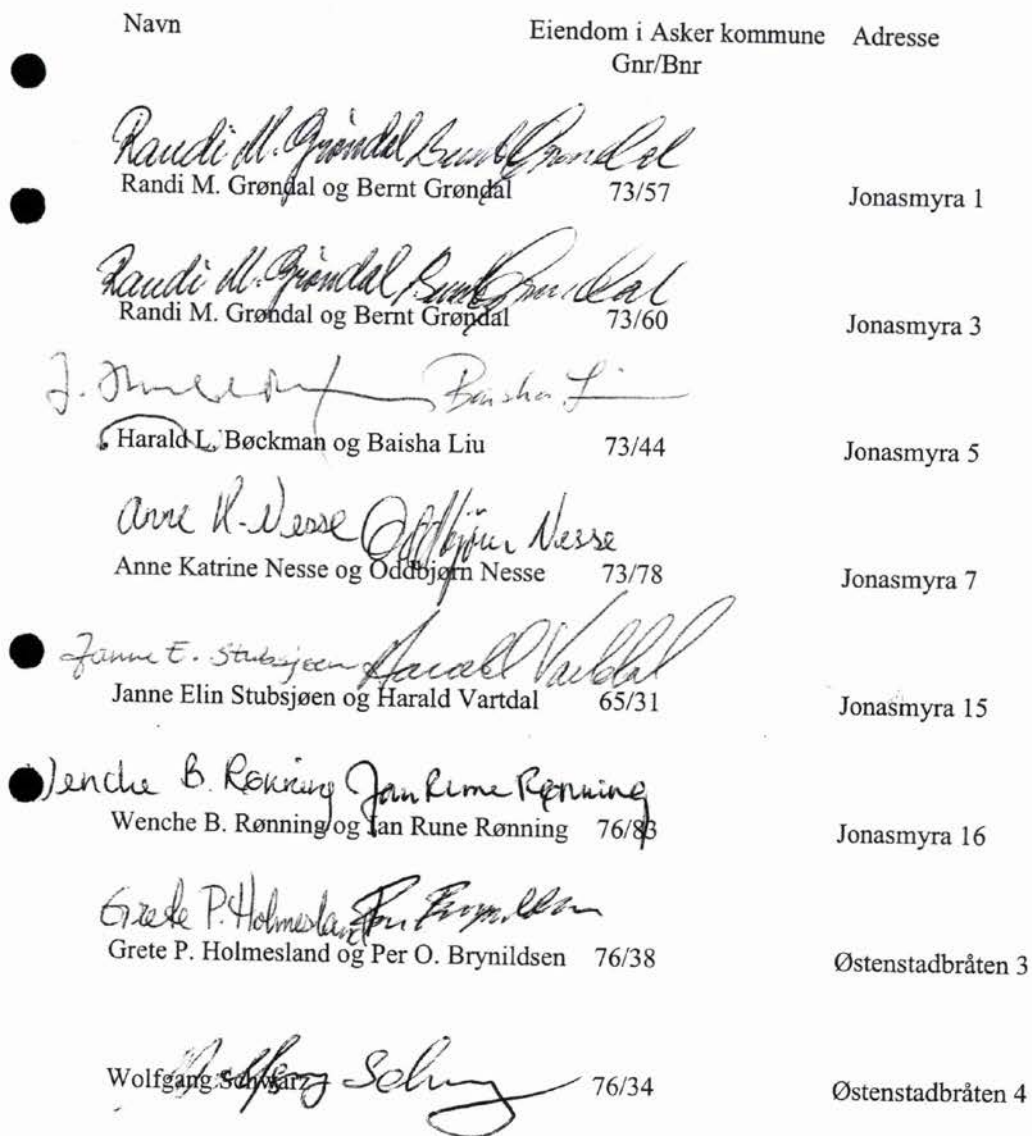 Navn Eiendom i Asker kommune Adresse
Gnr/Bnr
Randi M. Grøndal Bernt Grøndal
Randi M. Grøndal og Bernt Grøndal 73/57 Jonasmyra 1
Randi M. Grøndal Bernt Grøndal
Randi M. Grøndal og Bernt Grøndal 73/60 Jonasmyra 3
Baisha Li
Harald L. Bøckman og Baisha Liu 73/44 Jonasmyra 5
Anne K. Nesse Oddbjørn Nesse
Anne Katrine Nesse og Oddbjørn Nesse 73/78 Jonasmyra 7
Janne E. Stubsjøen Harald Vartdal
Janne Elin Stubsjøen og Harald Vartdal 65/31 Jonasmyra 15
Wenche B. Rønning Jan Rune Rønning
Wenche B. Rønning og Jan Rune Rønning 76/83 Jonasmyra 16
Grete P. Holmesland Per Brynildsen
Grete P. Holmesland og Per O. Brynildsen 76/38 Østenstadbråten 3
Wolfgang Schwarz 76/34 Østenstadbråten 4